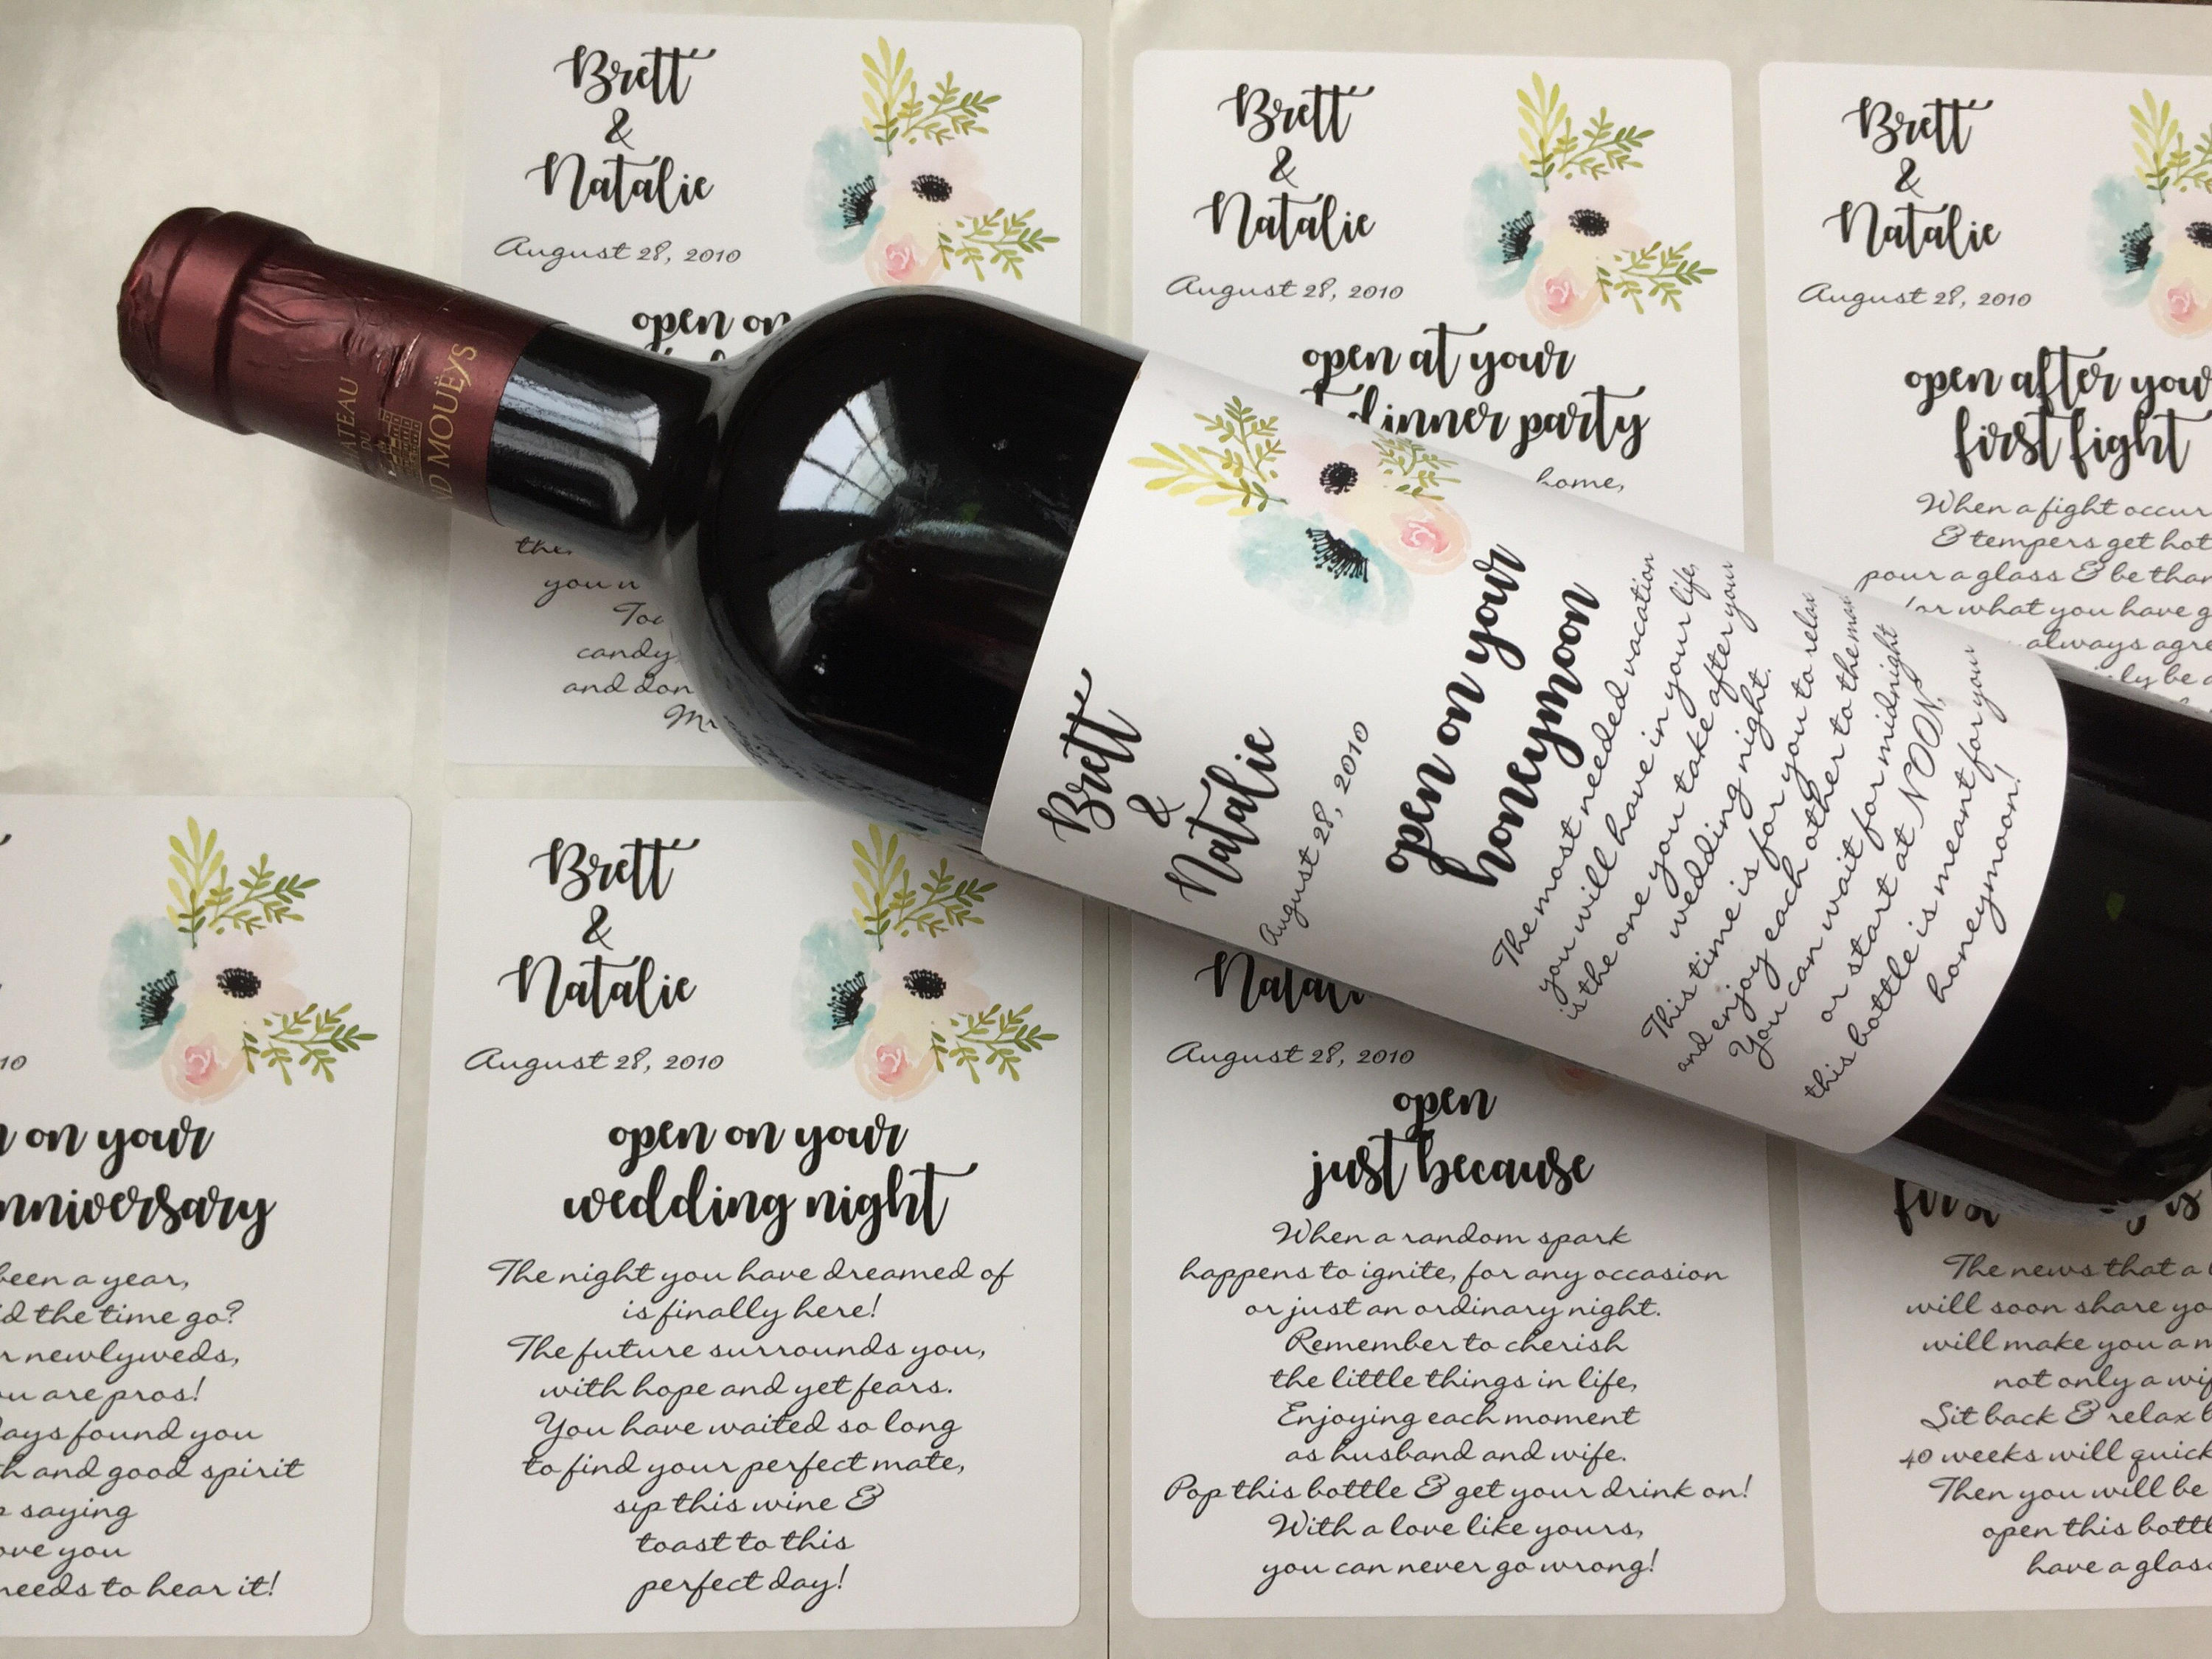 Brett
&
Natalie
August 28, 2010
open on
the
you
candy
and don
Brett
&
Natalie
August 28, 2010
open at your
dinner party
home,
Brett
&
Natalie
August 28, 2010
open after your
first fight
When a fight occur
& tempers get hot
pour a glass & be
for what you have
always agre
be
CHATEAU
DU
MOUËYS
Brett
&
Natalie
August 28, 2010
open on your
honeymoon
The most needed vacation
you will have in your life,
is the one you take after your
wedding night.
This time is for you to relax
and enjoy each other to the max
You can wait for midnight
or start at NOON,
this bottle is meant for your
honeymoon!
10
on your
anniversary
been a year,
the time go?
newlyweds,
you are pros!
found you
and good spirit
saying
love you
needs to hear it!
Brett
&
Natalie
August 28, 2010
open on your
wedding night
The night you have dreamed of
is finally here!
The future surrounds you,
with hope and yet fears.
You have waited so long
to find your perfect mate,
sip this wine &
toast to this
perfect day!
Natalie
August 28, 2010
open
just because
When a random spark
happens to ignite, for any occasion
or just an ordinary night.
Remember to cherish
the little things in life,
Enjoying each moment
as husband and wife.
Pop this bottle & get your drink on!
With a love like yours,
you can never go wrong!
first
The news that a
will soon share
will make you a
not only a
Sit back & relax
40 weeks will
Then you will be
open this
have a glass